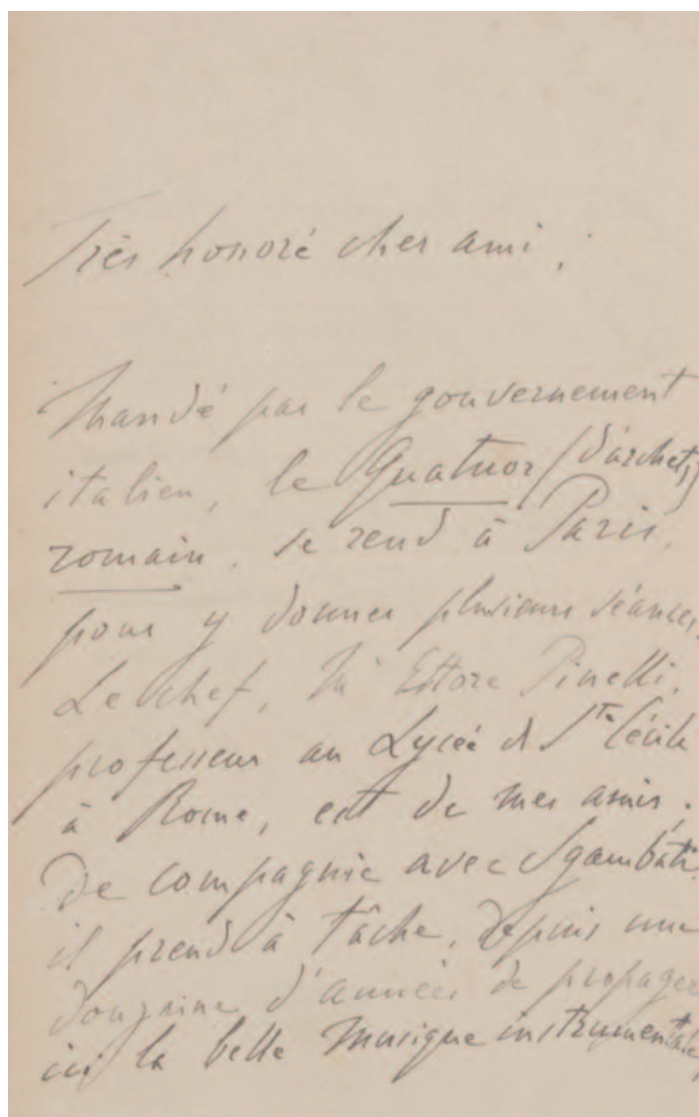 Très honoré cher ami,
Mandé par le gouvernement
italien, le Quatuor (d'archets)
romain, se rend à Paris,
pour y donner plusieurs séances.
Le chef, Mr Ettore Pinelli,
professeur au Lycée de Ste Cécile
à Rome, est de mes amis;
De compagnie avec Sgambati
il prend à tâche, depuis une
douzaine d'années de propager
ici la belle musique instrumentale,